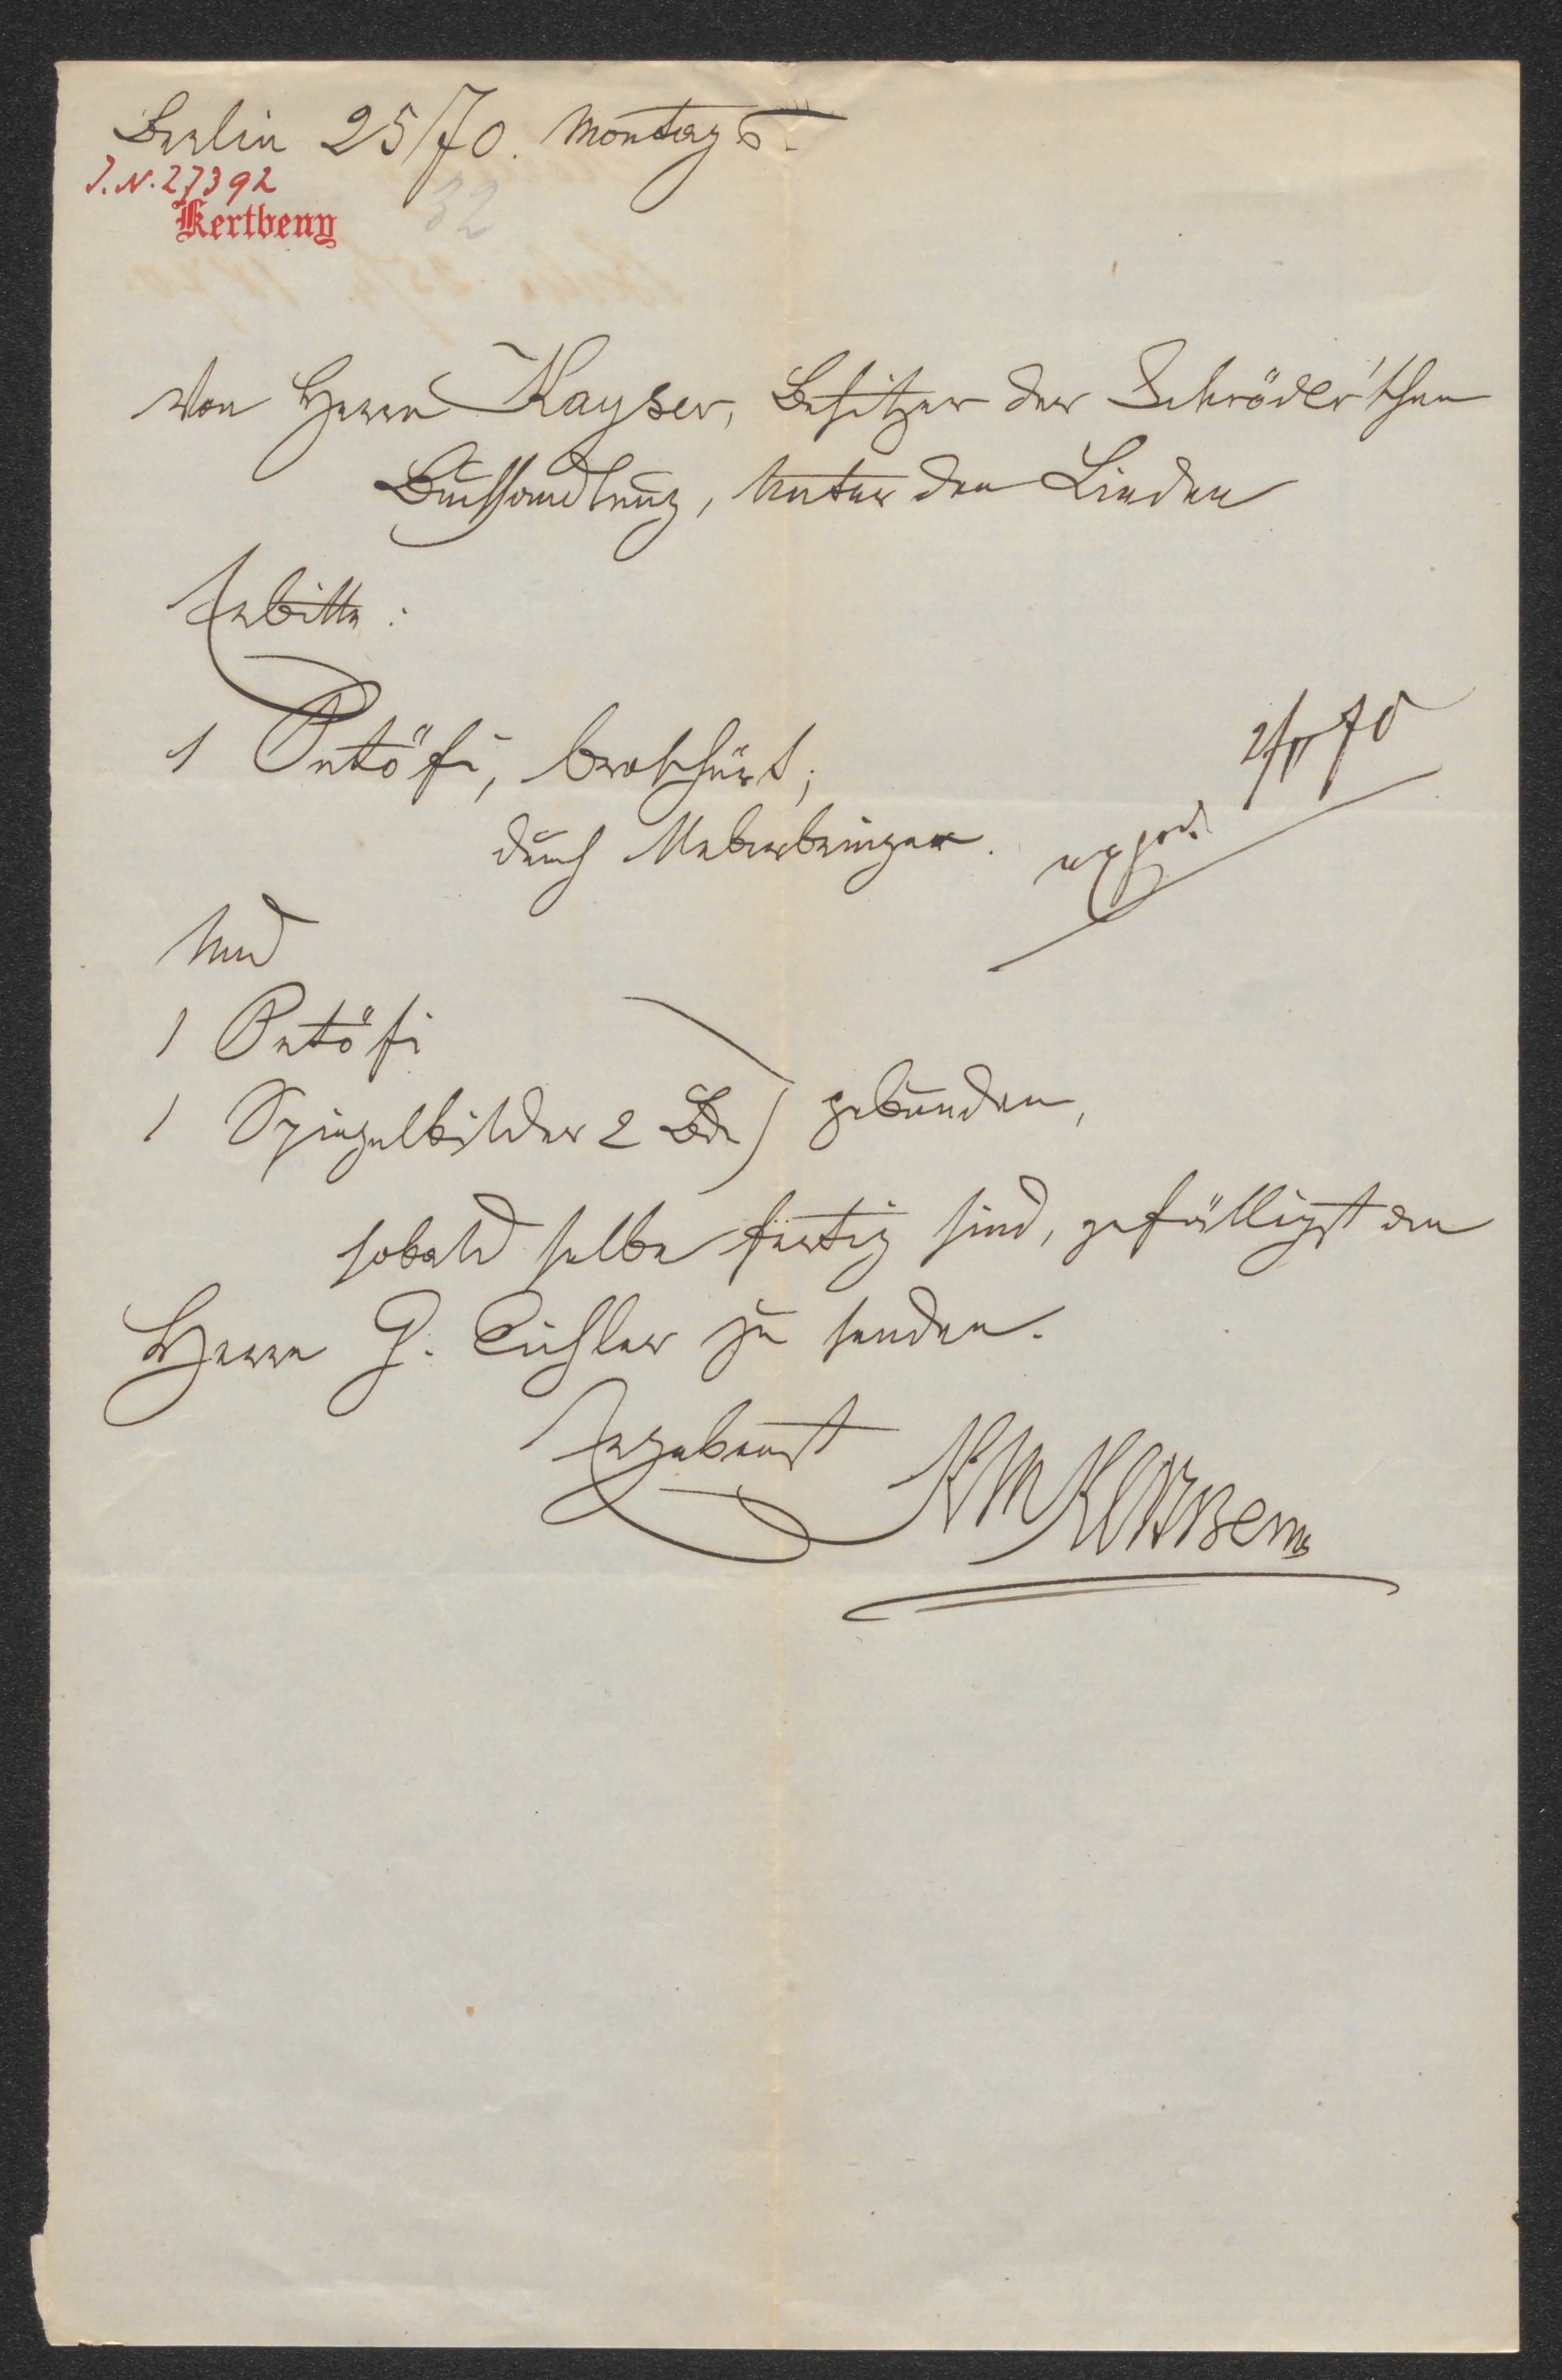 Berlin 25/70. Montags.
I.N. 27392
Kertbeny
32
Von Herrn Kayser, Besitzer der Schröder'schen
Buchhandlung, Unter den Linden
Erbitte:
1 Petöfi, broschürt;
durch Ueberbringer.
exped.
Und
1 Petöfi
1 Spiegelbilder 2 Bde gebunden,
sobald selbe fertig sind, gefälligst an
Herrn G. Eichler zu senden.
Ergebenst KMKertbeny